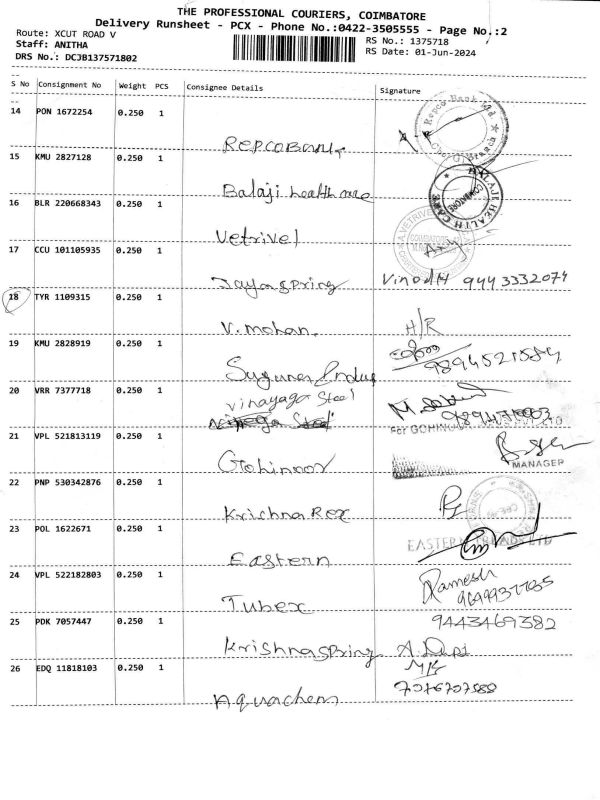 THE PROFESSIONAL COURIERS, COIMBATORE
Delivery Runsheet - PCX - Phone No.:0422-3505555 - Page No.:2
Route: XCUT ROAD V
RS No.: 1375718
Staff: ANITHA
RS Date: 01-Jun-2024
DRS No.: DCJB137571802
S No Consignment No Weight PCS Consignee Details Signature
14 PON 1672254 0.250 1
Repco Bank
15 KMU 2827128 0.250 1
Balaji health care
16 BLR 220668343 0.250 1
Vetrivel
17 CCU 101105935 0.250 1
Jaya spring Vinodh 9443332074
18 TYR 1109315 0.250 1
V. mohan. H/R
19 KMU 2828919 0.250 1
Suguna
20 VRR 7377718 0.250 1
Vinayaga Steel
21 VPL 521813119 0.250 1
For GOHINOOR
Gohinoor
MANAGER
22 PNP 530342876 0.250 1
Krishna Rex
23 POL 1622671 0.250 1
EASTERN
Eastern
24 VPL 522182803 0.250 1
Ramesh
Tubex
25 PDK 7057447 0.250 1 9443469382
Krishna spring
26 EDQ 11818103 0.250 1
Aquachem